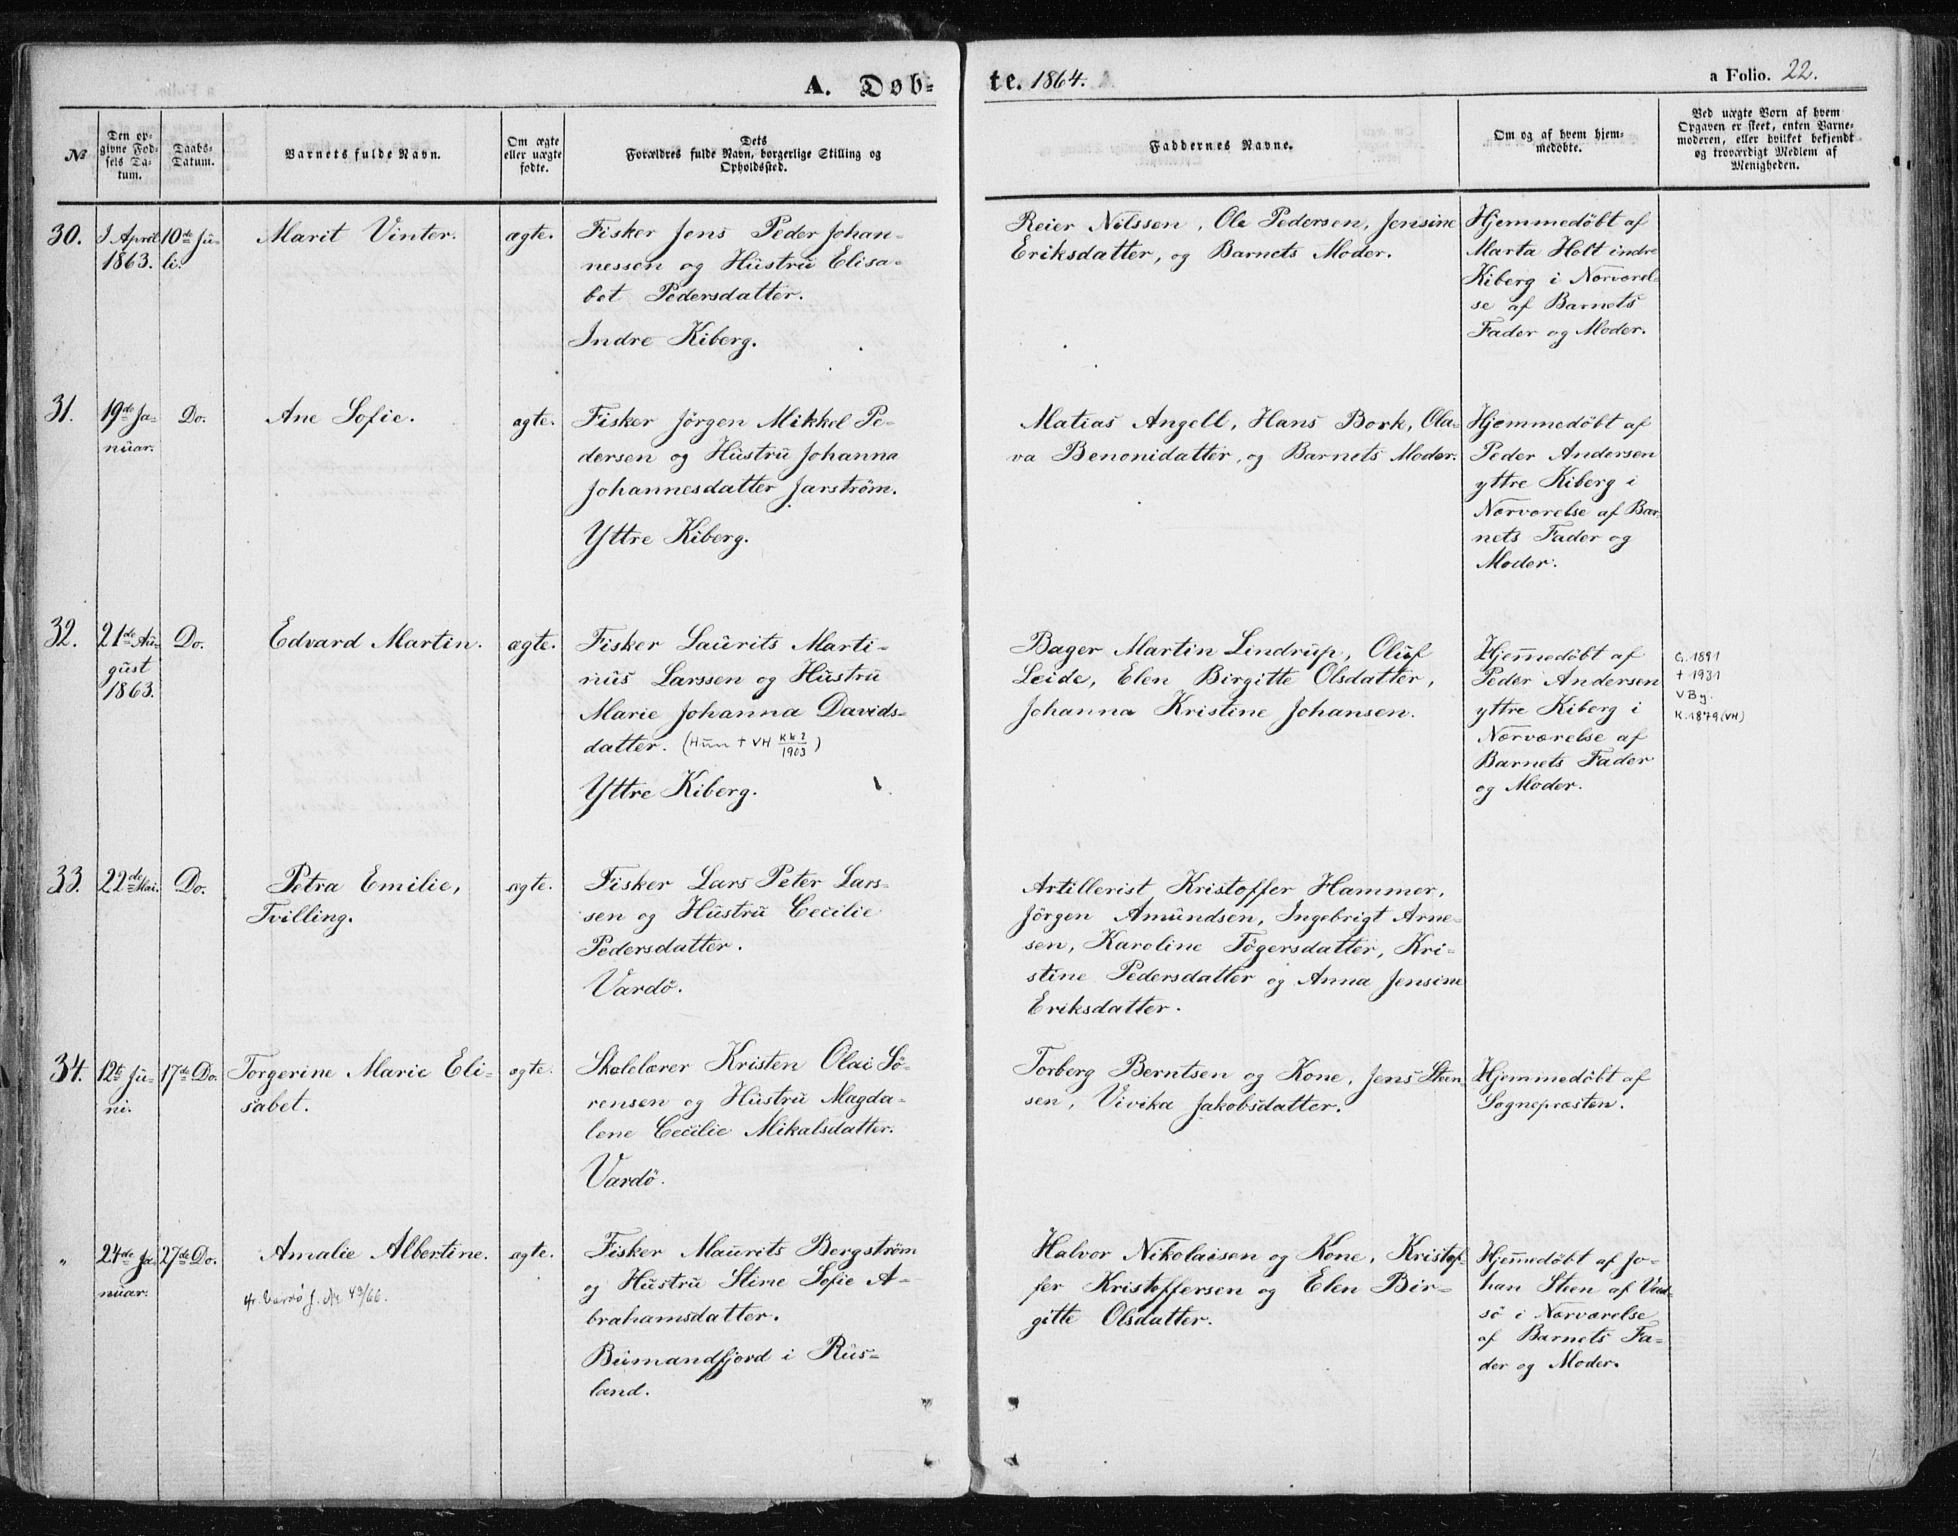 A. Døb-
te. 1864.
a Folio. 22.
No
Den op-
givne Fød-
sels Da-
tum.
Daabs-
Datum.
Barnets fulde Navn.
Om ægte
eller uægte
fødte.
Dets
Forældres fulde Navn, borgerlige Stilling og
Opholdssted.
Faddernes Navne.
Om og af hvem hjem-
medøbte.
Ved uægte Børn af hvem
Opgaven er skeet, enten Barne-
moderen, eller hvilket bekjendt
og troværdigt Medlem af
Menigheden.
30.
April
1863.
10de Ju-
li.
Marit Vinter.
ægte.
Fisker Jens Peder Johan-
nessen og Hustru Elisa-
bet Pedersdatter.
Indre Kiberg.
Reier Nilssen, Ole Pedersen, Jensine
Eriksdatter, og Barnets Moder.
Hjemmedøbt af
Marta Holt indre
Kiberg i Nærværel-
se af Barnets
Fader og Moder.
31.
19de Ja-
nuar.
Do.
Ane Sofie.
ægte.
Fisker Jörgen Mikkel Pe-
dersen og Hustru Johanna
Johannesdatter Jarström.
Yttre Kiberg.
Matias Angell, Hans Bork, Ola-
va Benonidatter, og Barnets Moder.
Hjemmedøbt af
Peder Andersen
yttre Kiberg i
Nærværelse af Bar-
nets Fader og
Moder.
32.
21de Au-
gust
1863.
Do.
Edvard Martin.
ægte.
Fisker Laurits Marti-
nus Larssen og Hustru
Marie Johanna Davids-
datter. (Hun + VH kk 2/1903)
Yttre Kiberg.
Bager Martin Lindrup, Oluf
Leide, Elen Birgitte Olsdatter,
Johanna Kristine Johansen.
Hjemmedøbt af
Peder Andersen
yttre Kiberg i
Nærværelse af
Barnets Fader
og Moder.
G. 1891
+ 1931
V By.
K. 1879 (VH)
33.
22de Mai.
Do.
Petra Emilie,
Tvilling.
ægte.
Fisker Lars Peter Lars-
sen og Hustru Cecilie
Pedersdatter.
Vardö.
Artillerist Kristoffer Hammer,
Jörgen Amundsen, Ingebrigt Arne-
sen, Karoline Tögersdatter, Kri-
stine Pedersdatter og Anna Jensine
Eriksdatter.
34.
12te Ju-
ni.
17de Do.
Torgerine Marie Eli-
sabet.
ægte.
Skolelærer Kristen Olai Sö-
rensen og Hustru Magda-
lene Cecilie Mikalsdatter.
Vardö.
Torberg Berntsen og Kone, Jens Steen-
sen, Vivika Jakobsdatter.
Hjemmedøbt af
Sognepræsten.
"
24de Ja-
nuar.
27de Do.
Amalie Albertine.
ægte.
Vardø f. Nr. 49/66.
Fisker Maurits Bergström
og Hustru Stine Sofie A-
brahamsdatter.
Bumandfjord i Rus-
land.
Halvor Nikolaisen og Kone, Kristof-
fer Kristoffersen og Elen Bir-
gitte Olsdatter.
Hjemmedøbt af Jo-
han Steen af Vad-
sö i Nærværelse
af Barnets Fa-
der og Moder.